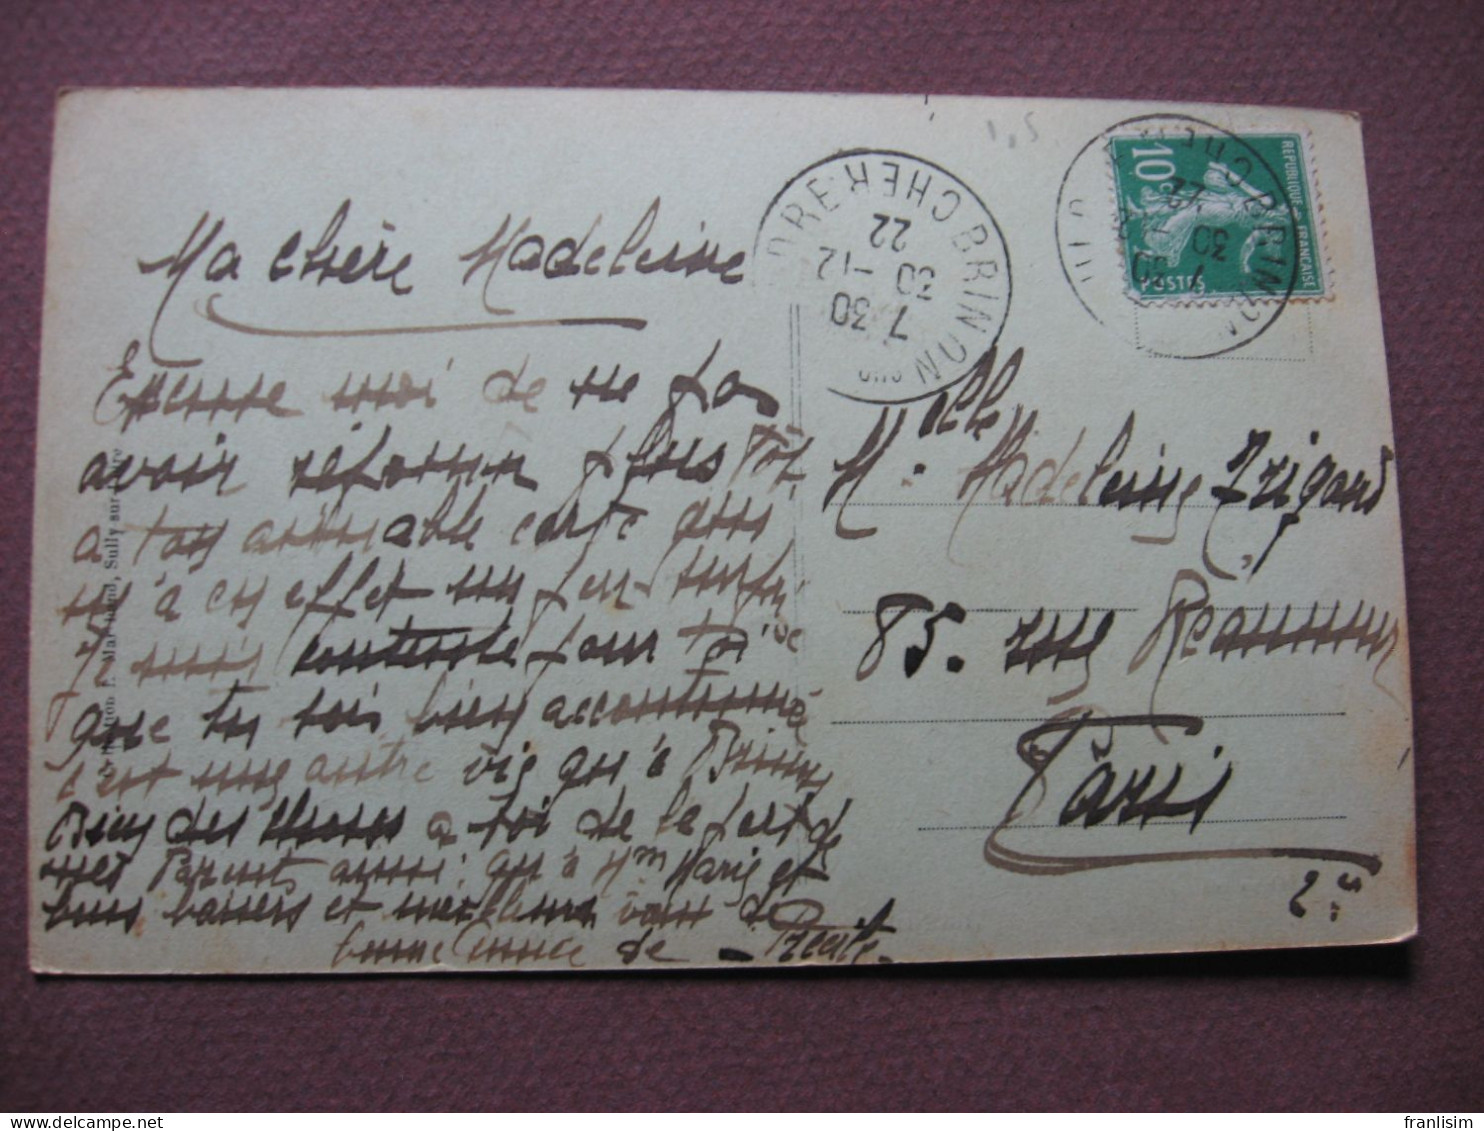 Ma chère Madeleine
Excuse moi de ne pas
avoir répondu plus tôt
a ton aimable carte
à cet effet un peu
Je suis contente pour toi
que tu sois bien accoutumé
c'est une autre vie qu'à Brinon
Bien des choses a toi de la part de
mes Parents aussi qu'à Mme Marie et
bons baisers et meilleurs vœux de
bonne année de
BRINON SUR SAULDRE
CHER
7 30
30 -12
22
RÉPUBLIQUE FRANÇAISE
10c
POSTES
BRINON
CHER
7 30
30
22
Melle Madeleine
85. rue Réaumur
Paris
Marchand, Sully-sur-Loire
franlisim